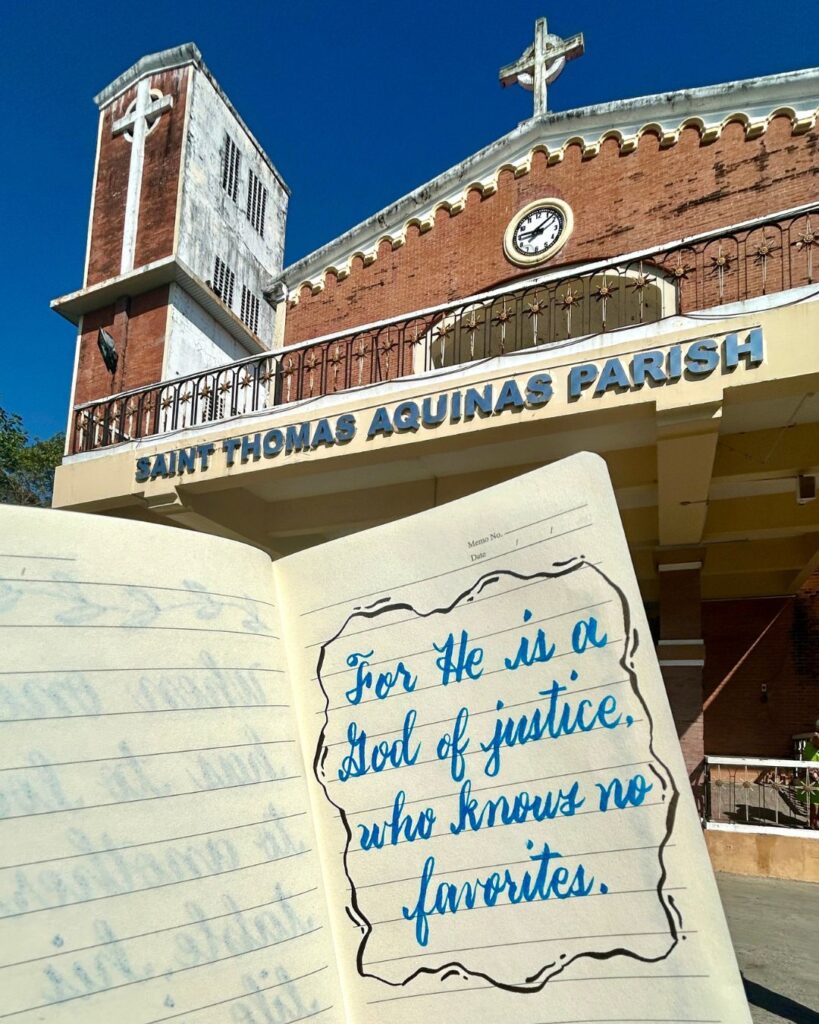 SAINT THOMAS AQUINAS PARISH
Memo No.
Date / /
For He is a
God of justice,
who knows no
favorites.